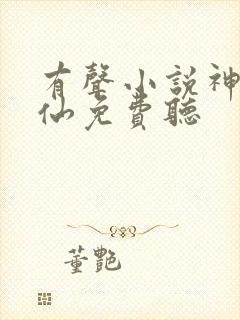 有聲小說神
仙免費聽
董艷